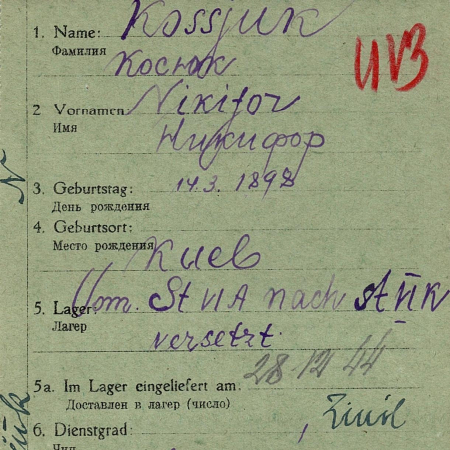 1. Name: Kossjuk
Фамилия Косюк
UB
2 Vornamen Nikifor
Имя Никифор
3. Geburtstag: 14.3.1898
День рождения
4. Geburtsort:
Место рождения Киев
5. Lager: Vom. St VI A nach St VI K
Лагер versetzt.
5a. Im Lager eingeliefert am: 28.12 44
Доставлен в лагер (число)
6. Dienstgrad: , Zivil
Чин